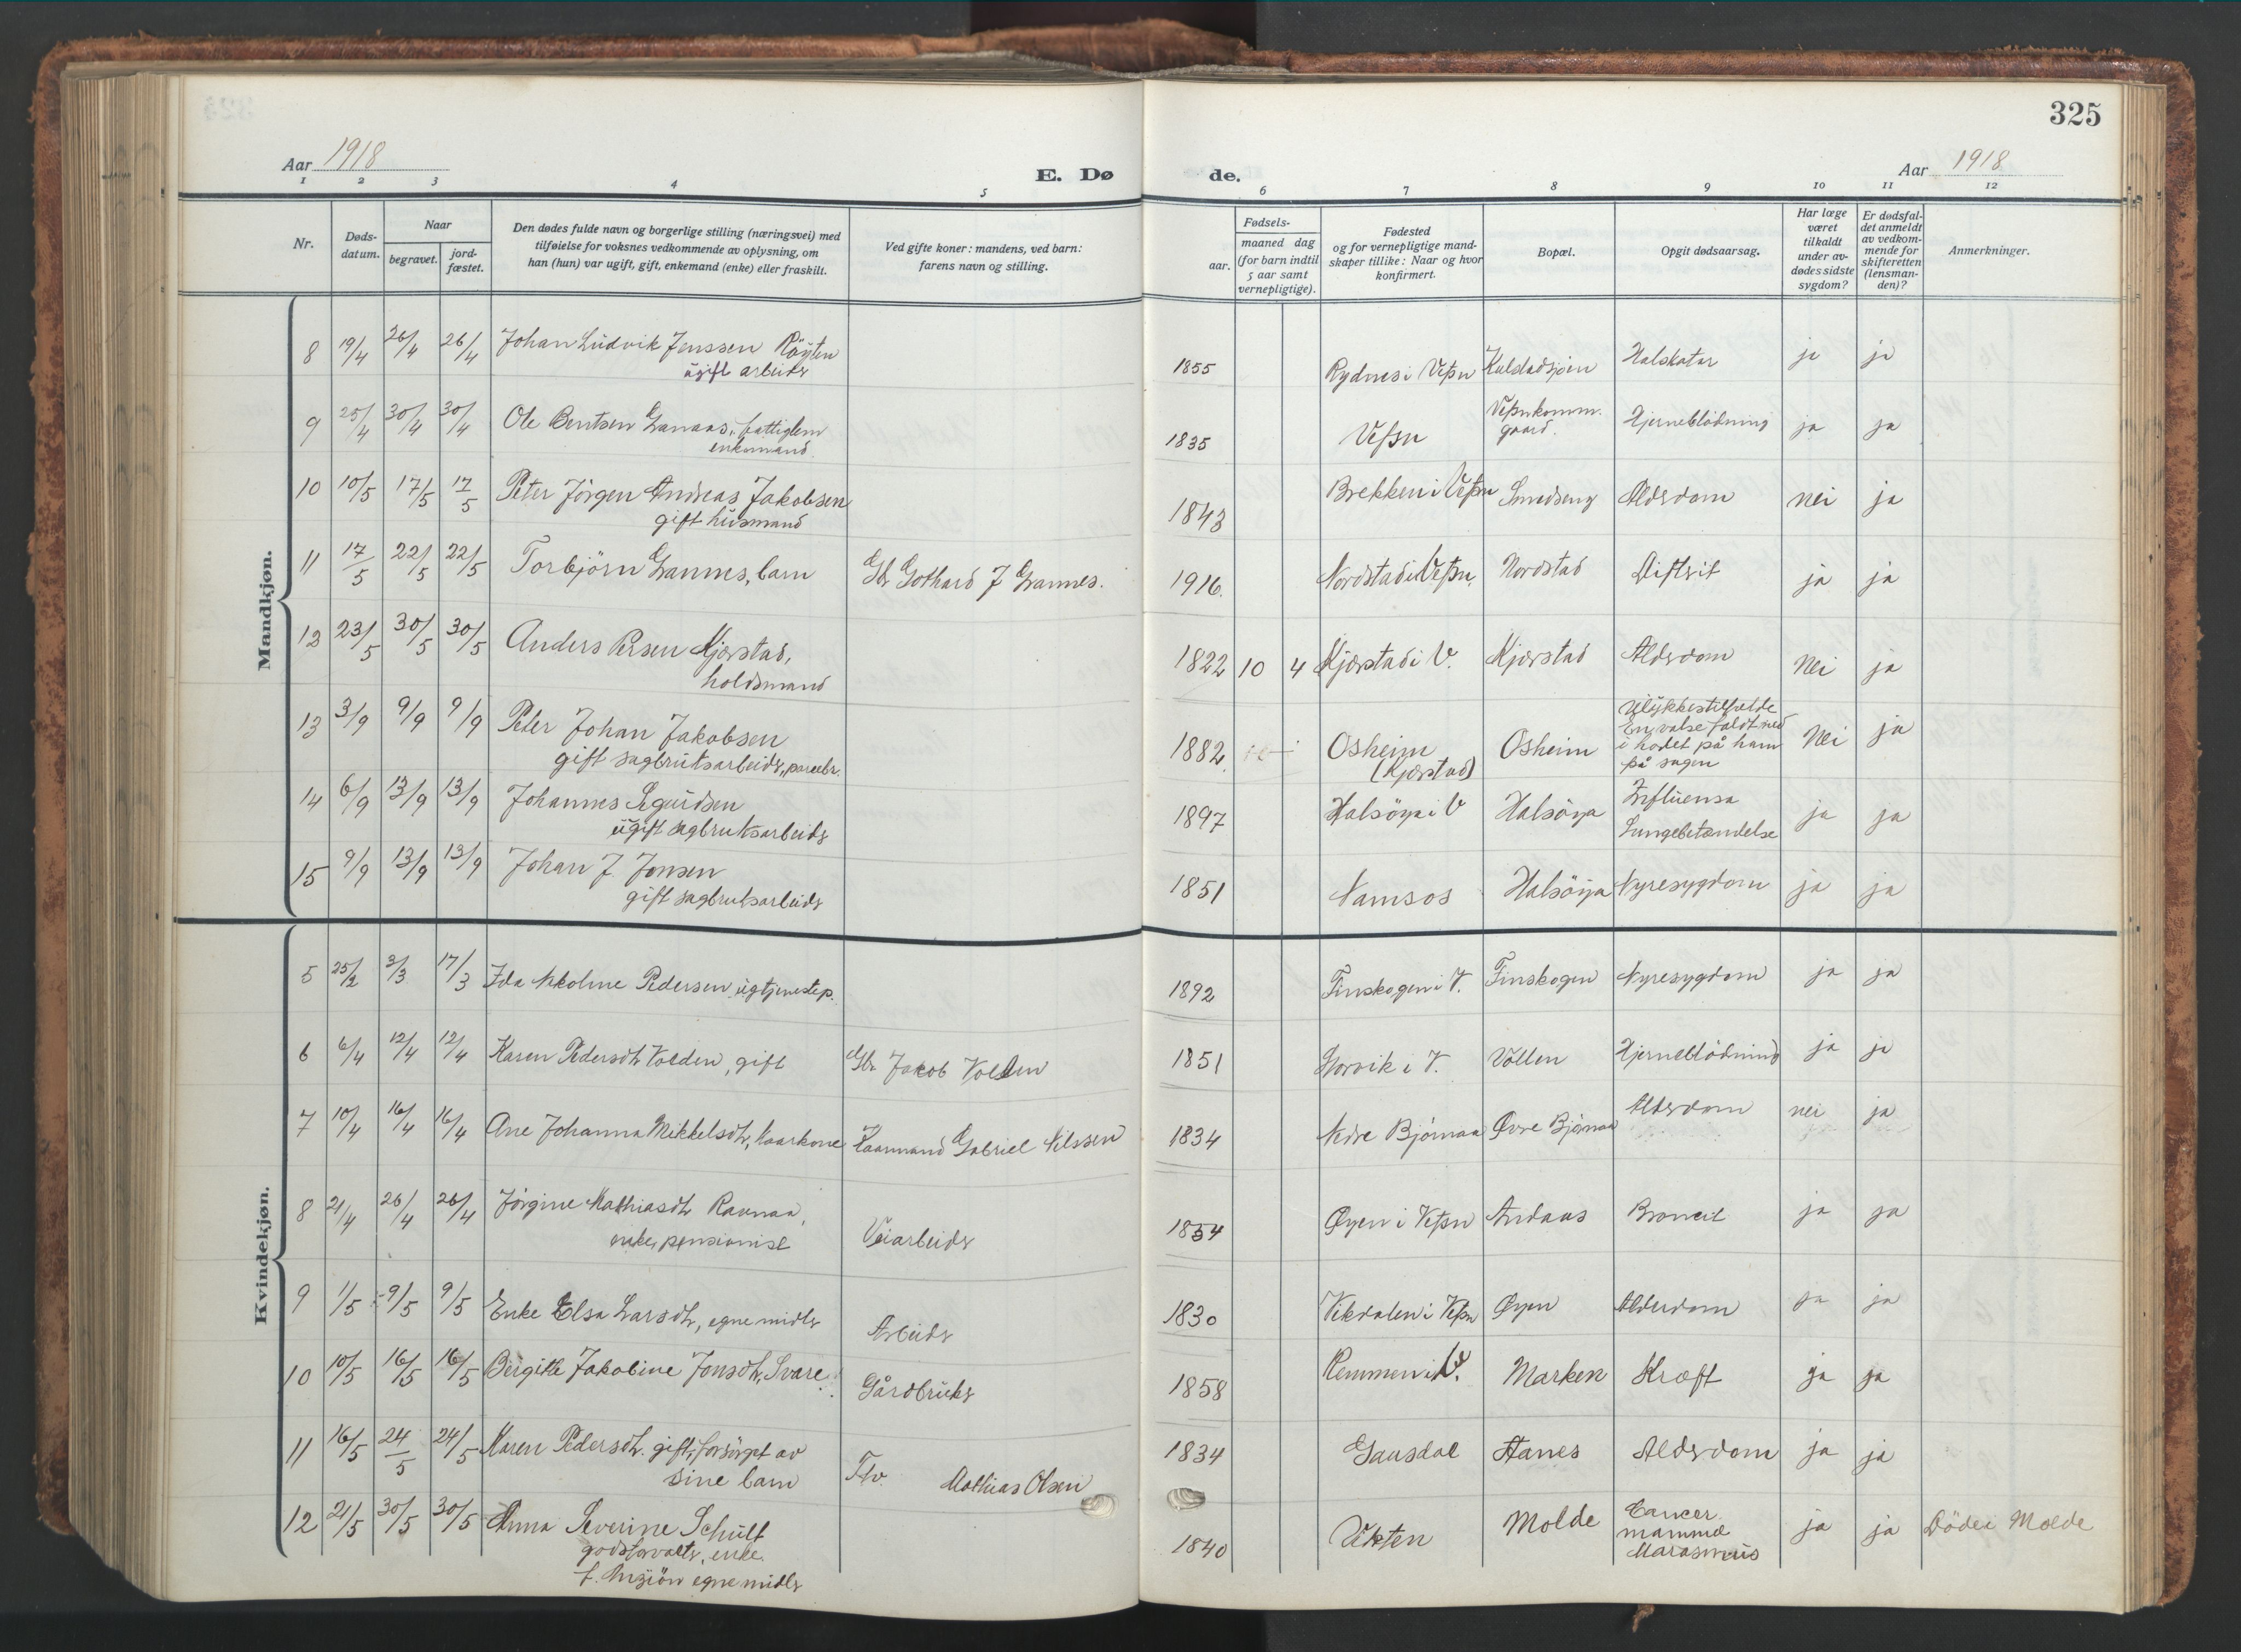 325
Aar 1918
E. Dø
de.
Aar 1918
1 2 3 4 5 6 7 8 9 10 11 12
Nr.
Døds-
datum.
Naar
begravet.
jord-
fæstet.
Den dødes fulde navn og borgerlige stilling (næringsvei) med
tilføielse for voksnes vedkommende av oplysning, om
han (hun) var ugift, gift, enkemand (enke) eller fraskilt.
Ved gifte koner: mandens, ved barn:
farens navn og stilling.
Fødsels-
aar.
maaned dag
(for barn indtil
5 aar samt
vernepligtige).
Fødested
og for vernepligtige mand-
skaper tillike: Naar og hvor
konfirmert.
Bopæl.
Opgit dødsaarsag.
Har læge
været
tilkaldt
under av-
dødes sidste
sygdom?
Er dødsfal-
det anmeldt
av vedkom-
mende for
skifteretten
(lensman-
den)?
Anmerkninger.
Mandkjøn.
8 19/4 26/4 26/4 Johan Ludvik Jenssen 1855 Rydnes i Vefsn Kuldalsjøen Halskatar ja ja
ugift arbeider
9 25/4 30/4 30/4 Ole Bentsen Granaas, fattiglem 1835 Vefsn Vefsnkomm. gaard. Hjerneblödning ja ja
enkemand
10 10/5 17/5 17/5 Peter Jörgen Andreas Jakobsen 1843 Brekken i Vefsn Smedseng Alderdom nei ja
gift husmand
11 17/5 22/5 22/5 Torbjörn Grannes, barn Gbr Gothard J Grannes. 1916. Nordstad i Vefsn. Nordstad Difterit ja ja
12 23/5 30/5 30/5 Anders Persen Kjærstad, 1822 10 4 Kjærstad i V. Kjærstad Alderdom Nei ja
holdsmand
13 3/9 9/9 9/9 Peter Johan Jakobsen 1882 Osheim (Kjærstad) Osheim Ulykkestilfælde En valse faldt ned i hodet på ham på sagen Nei ja
gift sagbruksarbeider, parcelbr.
14 6/9 13/9 13/9 Johannes Sigurdsen 1897 Halsöya i V Halsöya Influensa Lungebetændelse ja ja
ugift sagbruksarbeider
15 9/9 13/9 13/9 Johan J. Jonsen 1851 Namsos Halsöya Nyresygdom ja ja
gift sagbruksarbeider
Kvindekjøn.
5 25/2 3/3 17/3 Ida Nikoline Pedersen ug tjenestep. 1892 Finskogen i V. Finskogen Nyresygdom ja ja
6 6/4 12/4 12/4 Karen Pedersdtr Volden, gift Gbr Jakob Volden 1851 i V. Vollen Hjerneblödning ja ja
7 10/4 16/4 16/4 Ane Johanna Mikkelsdtr, Kaarkone Kaarmand Gabriel Nilssen 1834 Nedre Bjørnaa Øvre Bjørnaa Alderdom nei ja
8 21/4 26/4 26/4 Jörgine Mathiasdtr Ravnaa, Veiarbeider 1834 Øyen i Vefsn Andaas ja ja
enke, pensionist
9 1/5 9/5 9/5 Enke Elsa Larsdtr, egne midler Arbeider 1830 Vikdalen i Vefsn Øyen Alderdom ja ja
10 10/5 16/5 16/5 Birgitte Jakobine Jonsdtr, Svare Gårdbruker 1858 Remmen i V. Marken Kræft ja ja
11 16/5 24/5 24/5 Karen Pedersdtr. gift, forsörget av Mathias Olsen 1834 Gausdal Hanes Alderdom ja ja
sine barn
12 21/5 30/5 30/5 Anna Severine Schult 1840 Vikten Molde Cancer mammæ Marasmus ja ja Döde i Molde
godsforvalter, enke.
egne midler